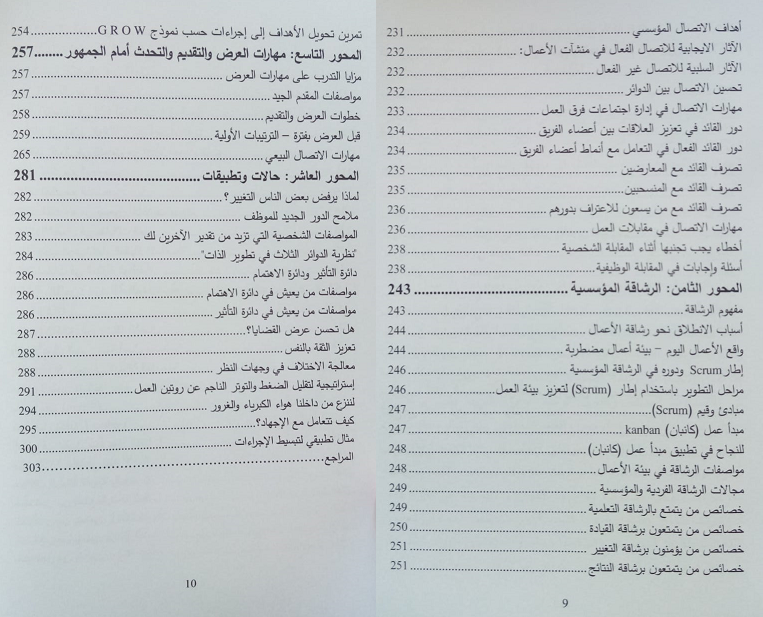 أهداف الاتصال المؤسسي 231
الآثار الايجابية للاتصال الفعال في منشآت الأعمال: 232
الآثار السلبية للاتصال غير الفعال 232
تحسين الاتصال بين الدوائر 232
مهارات الاتصال في إدارة اجتماعات فرق العمل 233
دور القائد في تعزيز العلاقات بين أعضاء الفريق 234
دور القائد الفعال في التعامل مع أنماط أعضاء الفريق 234
تصرف القائد مع المعارضين 235
تصرف القائد مع المنسحبين 235
تصرف القائد مع من يسعون للاعتراف بدورهم 236
مهارات الاتصال في مقابلات العمل 236
أخطاء يجب تجنبها أثناء المقابلة الشخصية 238
أسئلة وإجابات في المقابلة الوظيفية 238
المحور الثامن: الرشاقة المؤسسية 243
مفهوم الرشاقة 243
أسباب الانطلاق نحو رشاقة الأعمال 244
واقع الأعمال اليوم – بيئة أعمال مضطربة 244
إطار Scrum ودوره في الرشاقة المؤسسية 246
مراحل التطوير باستخدام إطار (Scrum) لتعزيز بيئة العمل 246
مبادئ وقيم (Scrum) 247
مبدأ عمل (كانبان) kanban 247
للنجاح في تطبيق مبدأ عمل (كانبان) 248
مواصفات الرشاقة في بيئة الأعمال 248
مجالات الرشاقة الفردية والمؤسسية 249
خصائص من يتمتع بالرشاقة التعلمية 249
خصائص من يتمتعون برشاقة القيادة 250
خصائص من يؤمنون برشاقة التغيير 251
خصائص من يتمتعون برشاقة النتائج 251
9
تمرين تحويل الأهداف إلى إجراءات حسب نموذج G R O W 254
المحور التاسع: مهارات العرض والتقديم والتحدث أمام الجمهور 257
مزايا التدرب على مهارات العرض 257
مواصفات المقدم الجيد 257
خطوات العرض والتقديم 258
قبل العرض بفترة – الترتيبات الأولية 259
مهارات الاتصال البيعي 265
المحور العاشر: حالات وتطبيقات 281
لماذا يرفض بعض الناس التغيير؟ 282
ملامح الدور الجديد للموظف 282
المواصفات الشخصية التي تزيد من تقدير الآخرين لك 283
"نظرية الدوائر الثلاث في تطوير الذات" 284
دائرة التأثير ودائرة الاهتمام 286
مواصفات من يعيش في دائرة الاهتمام 286
مواصفات من يعيش في دائرة التأثير 286
هل تحسن عرض القضايا؟ 287
تعزيز الثقة بالنفس 288
معالجة الاختلاف في وجهات النظر 288
إستراتيجية لتقليل الضغط والتوتر الناجم عن روتين العمل 291
لننزع من داخلنا هواء الكبرياء والغرور 294
كيف تتعامل مع الإجهاد؟ 295
مثال تطبيقي لتبسيط الإجراءات 300
المراجع 303
10